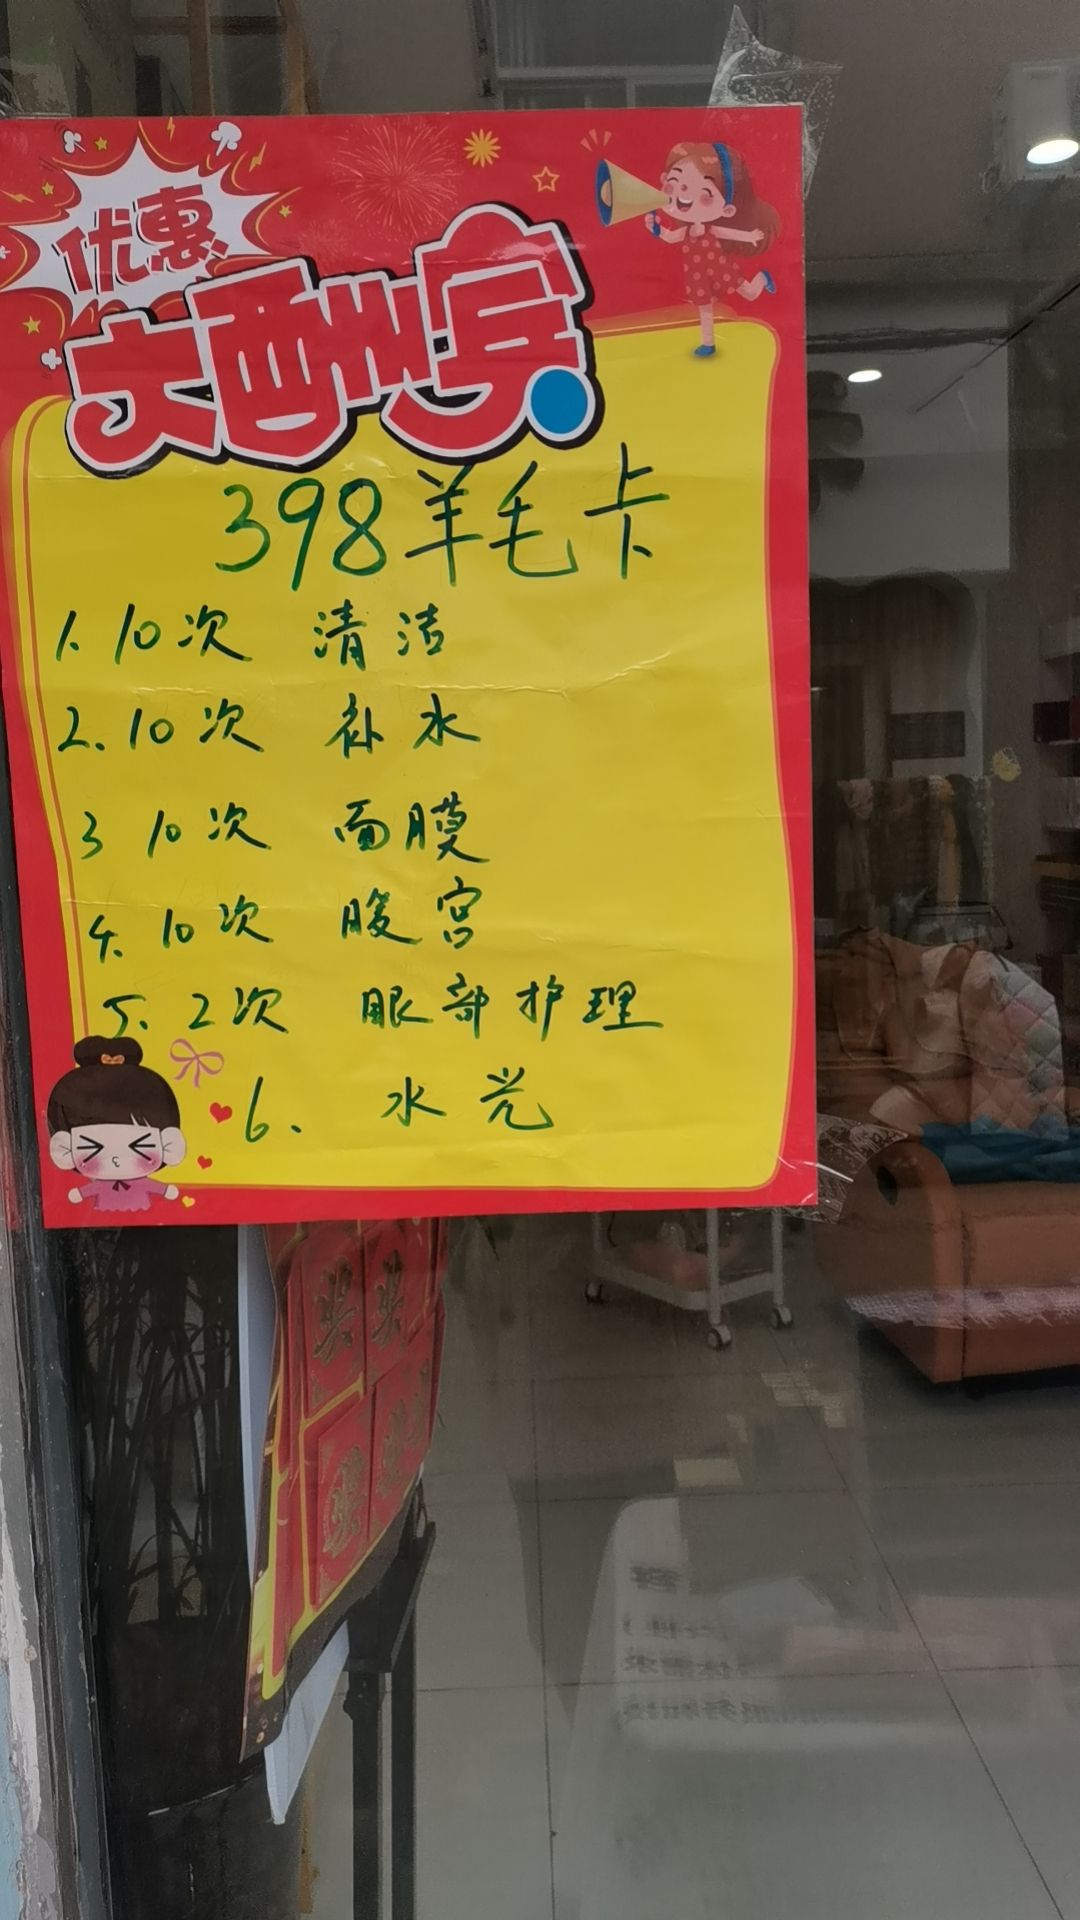 优惠
大酬宾
398羊毛卡
1. 10次 清洁
2. 10次 补水
3 10次 面膜
4. 10次 腹宫
5. 2次 眼部护理
6. 水光